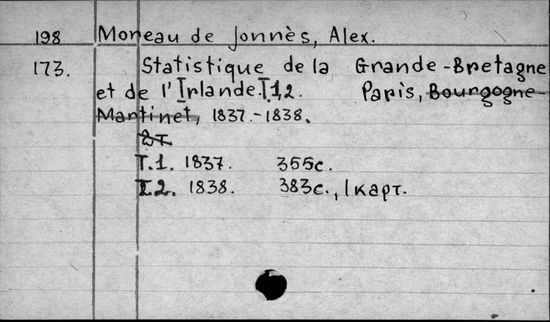 198 Moreau de Jonnès, Alex.
173. Statistique de la Grande-Bretagne
et de l'Irlande T.1,2. Paris, Bourgogne-
Martinet, 1837.-1838.
2т.
T.1. 1837. 355с.
T.2. 1838. 383с., 1 карт.